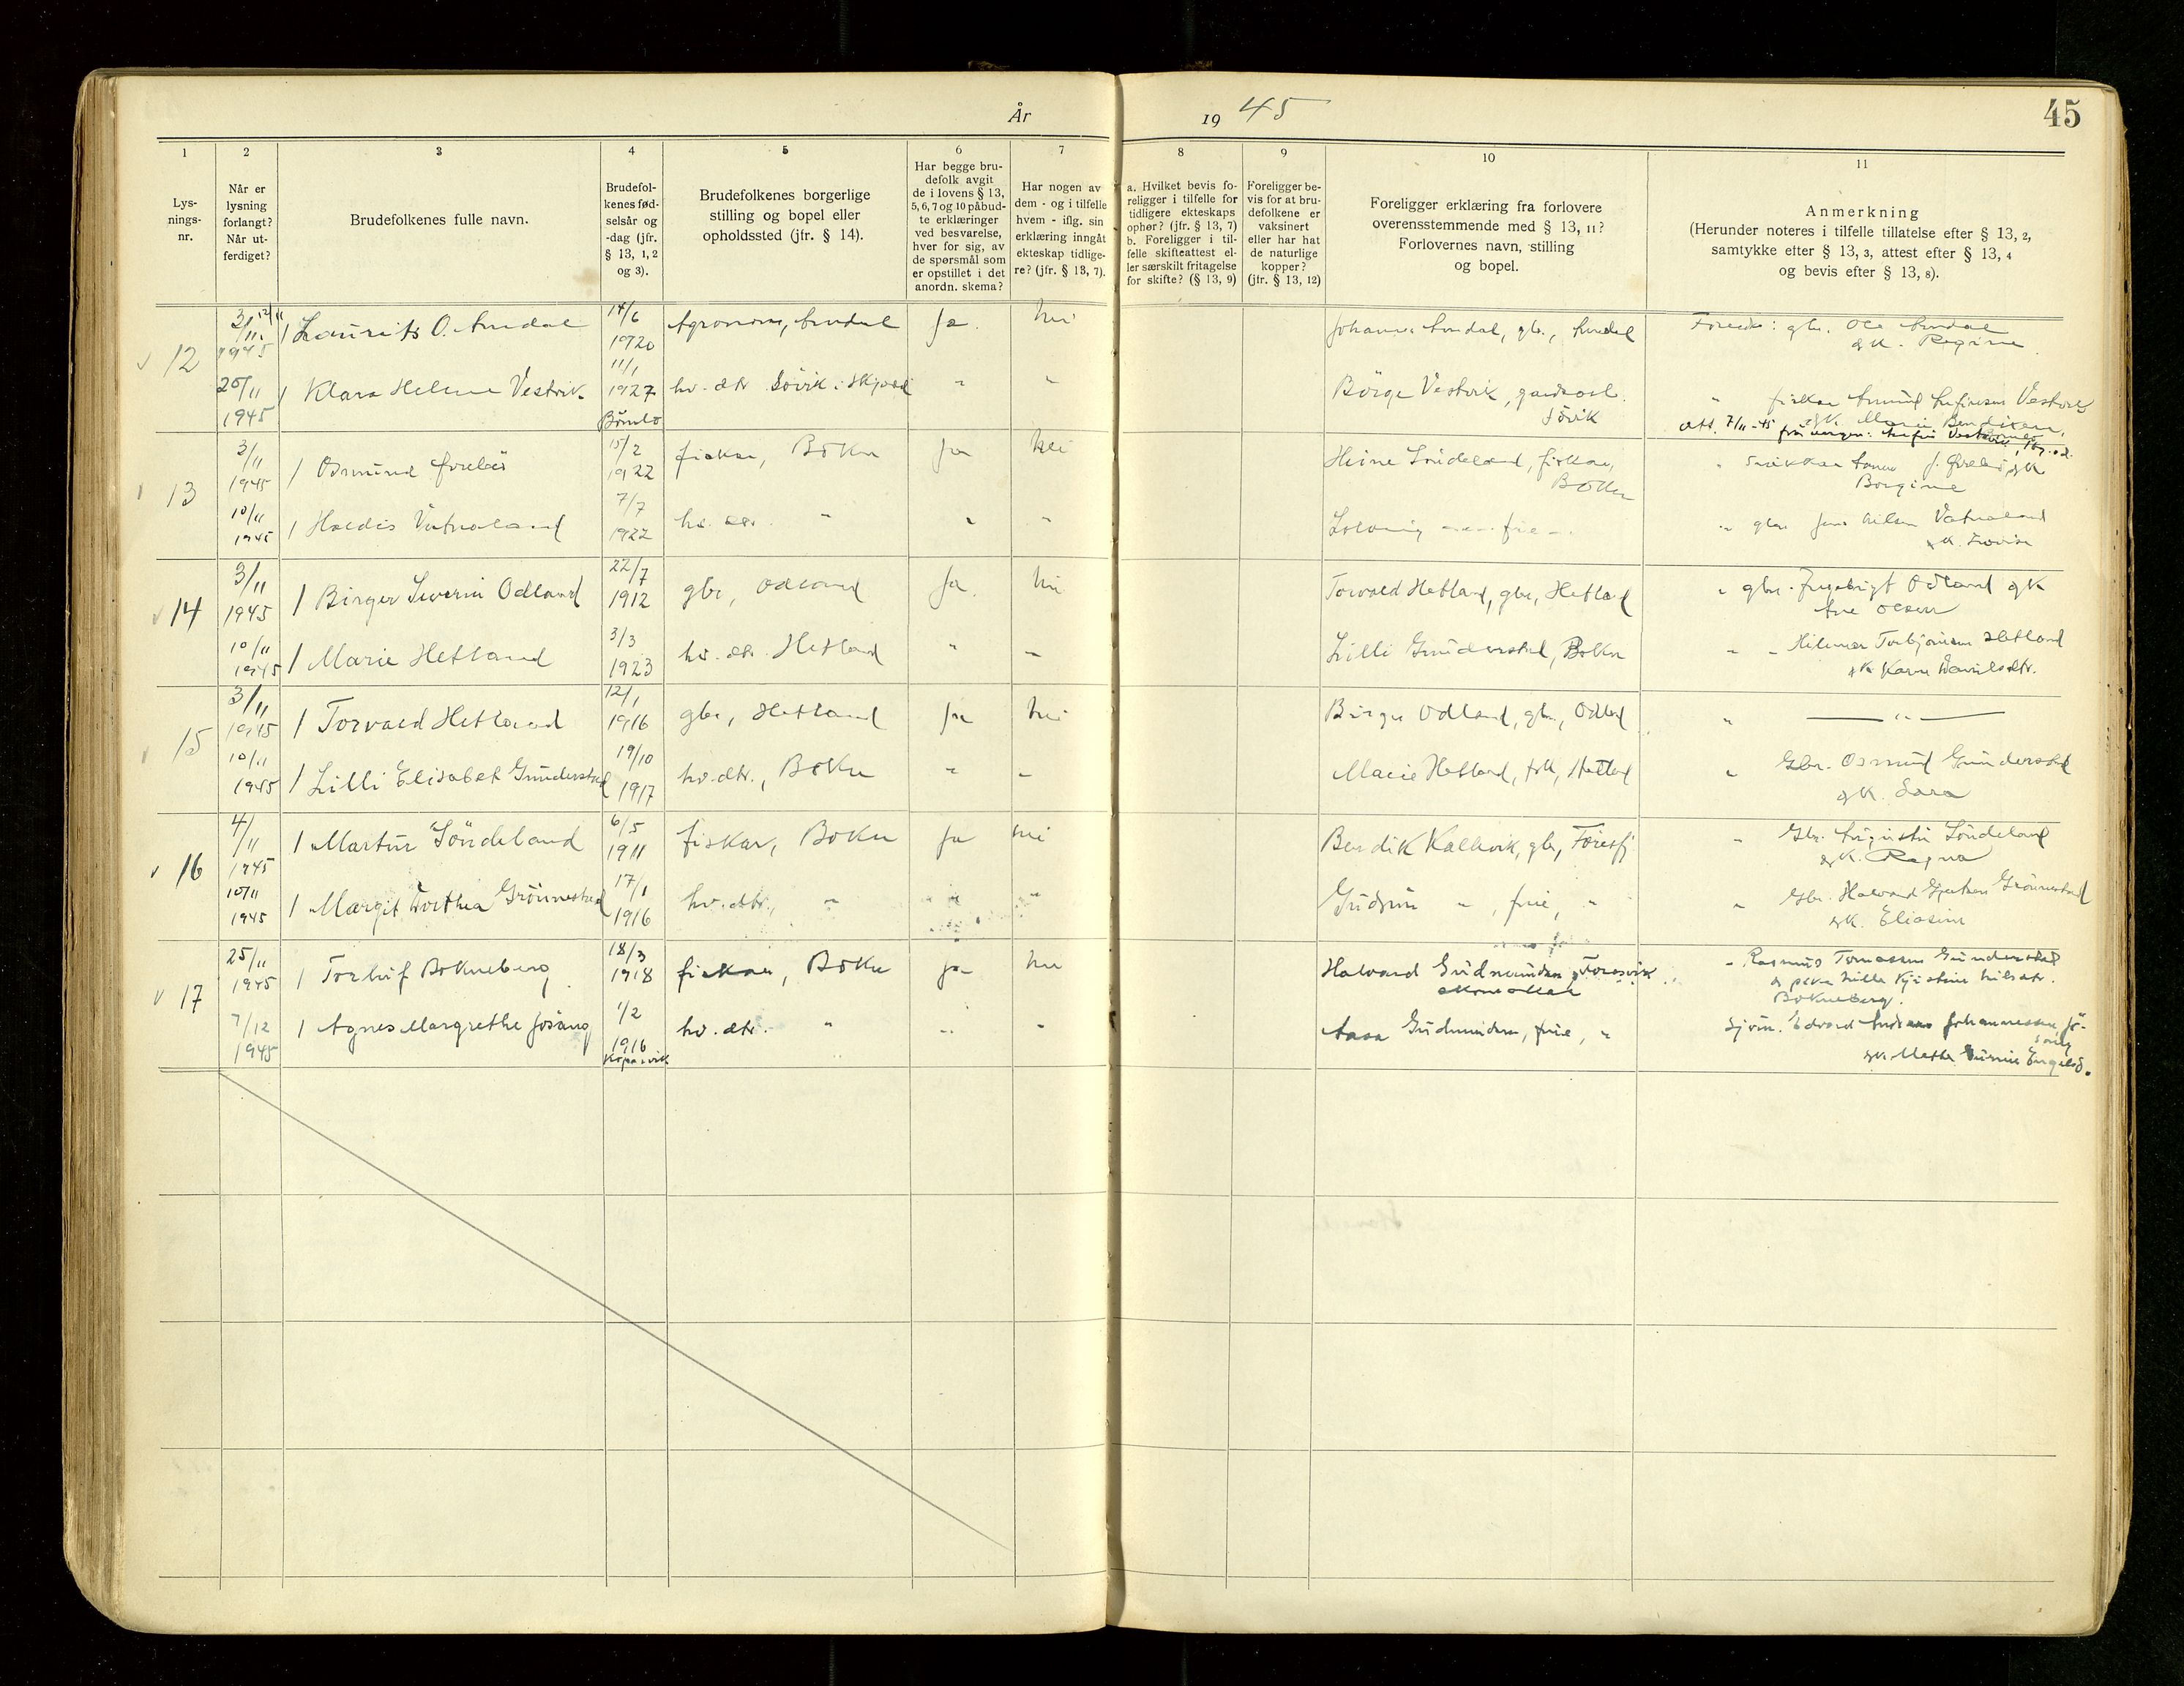 År 19 45
45
1 2 3 4 5 6 7 8 9 10 11
Lys-
nings-
nr.
Når er
lysning
forlangt?
Når ut-
ferdiget?
Brudefolkenes fulle navn.
Brudefol-
kenes fød-
selsår og
-dag (jfr.
§ 13, 1, 2
og 3).
Brudefolkenes borgerlige
stilling og bopel eller
opholdssted (jfr. § 14).
Har begge bru-
defolk avgit
de i lovens § 13,
5, 6, 7 og 10 påbud-
te erklæringer
ved besvarelse,
hver for sig, av
de spørsmål som
er opstillet i det
anordn. skema?
Har nogen av
dem - og i tilfelle
hvem - iflg. sin
erklæring inngåt
ekteskap tidlige-
re? (jfr. § 13, 7).
a. Hvilket bevis fo-
religger i tilfelle for
tidligere ekteskaps
ophør? (jfr. § 13, 7)
b. Foreligger i til-
felle skifteattest el-
ler særskilt fritagelse
for skifte? (§ 13, 9)
Foreligger be-
vis for at bru-
defolkene er
vaksinert
eller har hat
de naturlige
kopper?
(jfr. § 13, 12)
Foreligger erklæring fra forlovere
overensstemmende med § 13, 11?
Forlovernes navn, stilling
og bopel.
Anmerkning
(Herunder noteres i tilfelle tillatelse efter § 13, 2,
samtykke efter § 13, 3, attest efter § 13, 4
og bevis efter § 13, 8).
12
3/11 1945
1 Laurits O. Amdal
14/6 1920
Agronom, Amdal
Ja
nei
Johannes Amdal, gbr., Amdal
Foreldre: gbr. Ole Amdal
og k. Regine
20/11 1945
1 Klara Helene Vestvik
11/1 1927 Bömlo
hv. dtr. Sövik i Skjold
" "
Börge Vestvik, gardsarb.
Sövik
" fisker
Vestvik
og k. Marie Bendixen,
Att. 7/11-45
13
3/11 1945
1 Osmund
15/2 1922
fisker, Bokn
Ja
nei
Söndeland, fisker,
Bokn
" Snikkar
og k.
Borgine
10/11 1945
1 Haldis Vatnaland
7/7 1922
hv. dtr. "
" "
" gbr. Jens Nilsen Vatnaland
og k. Lovise
14
3/11 1945
1 Birger Severin Odland
22/7 1912
gbr, Odland
Ja
nei
Torvald Hetland, gbr, Hetland
" gbr. Ingebrigt Odland og k
Ane Olsen
10/11 1945
1 Marie Hetland
3/3 1923
hv. dtr. Hetland
" "
Lilli Gunderstad, Bokn
" " Hilmar Torbjörnsen Hetland
og k Karen Danielsdtr.
15
3/11 1945
1 Torvald Hetland
12/1 1916
gbr, Hetland
Ja
nei
Birger Odland, gbr, Odland
" — " —
10/11 1945
1 Lilli Elisabet Gunderstad
19/10 1917
hv. dtr., Bokn
" "
Marie Hetland, frk, Hetland
" Gbr. Osmund Gunderstad
og k. Sara
16
4/11 1945
1 Martin Söndeland
6/5 1911
fisker, Bokn
Ja
nei
Bendik Kallevik, gbr,Föresfj
" Gbr. Söndeland
og k. Ragna
10/11 1945
1 Margit Dorthea Grönnestad
17/1 1916
hv. dtr., "
" "
Gudrun ", frue, "
" Gbr. Halvard Grönnestad
og k. Eliasine
17
25/11 1945
1 Torleif Bokneberg
18/3 1918
fisker, Bokn
ja
nei
Halvard Gudmundsen, Foresvik
skomaker
" Rasmus Tomassen Gunderstad
Bokneberg.
7/12 1945
1 Agnes Margrethe Jösang
1/2 1916 Kopervik
hv. dtr. "
" "
Aasa Gudmundsen, frue, "
Sjöm. Edvard Andreas Johannessen Jö-
sang
og k. Metha Gurine